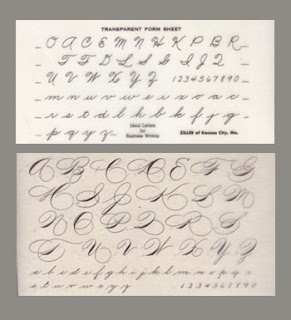 TRANSPARENT FORM SHEET
O A C E M N H K P B R
T F D L S G I J Q
U V W X Y Z 1234567890
m n u v w e i x o a c
r s t d l h b k f j g
p q y z
Ideal Letters
for
Business Writing
ZILLER of Kansas City, Mo.
A B C D E F G
H I J K L M
N O P Q R S
T U V W X Y Z
a b c d e f g h i j k l m n o p q r
s t u v w x y z 1234567890